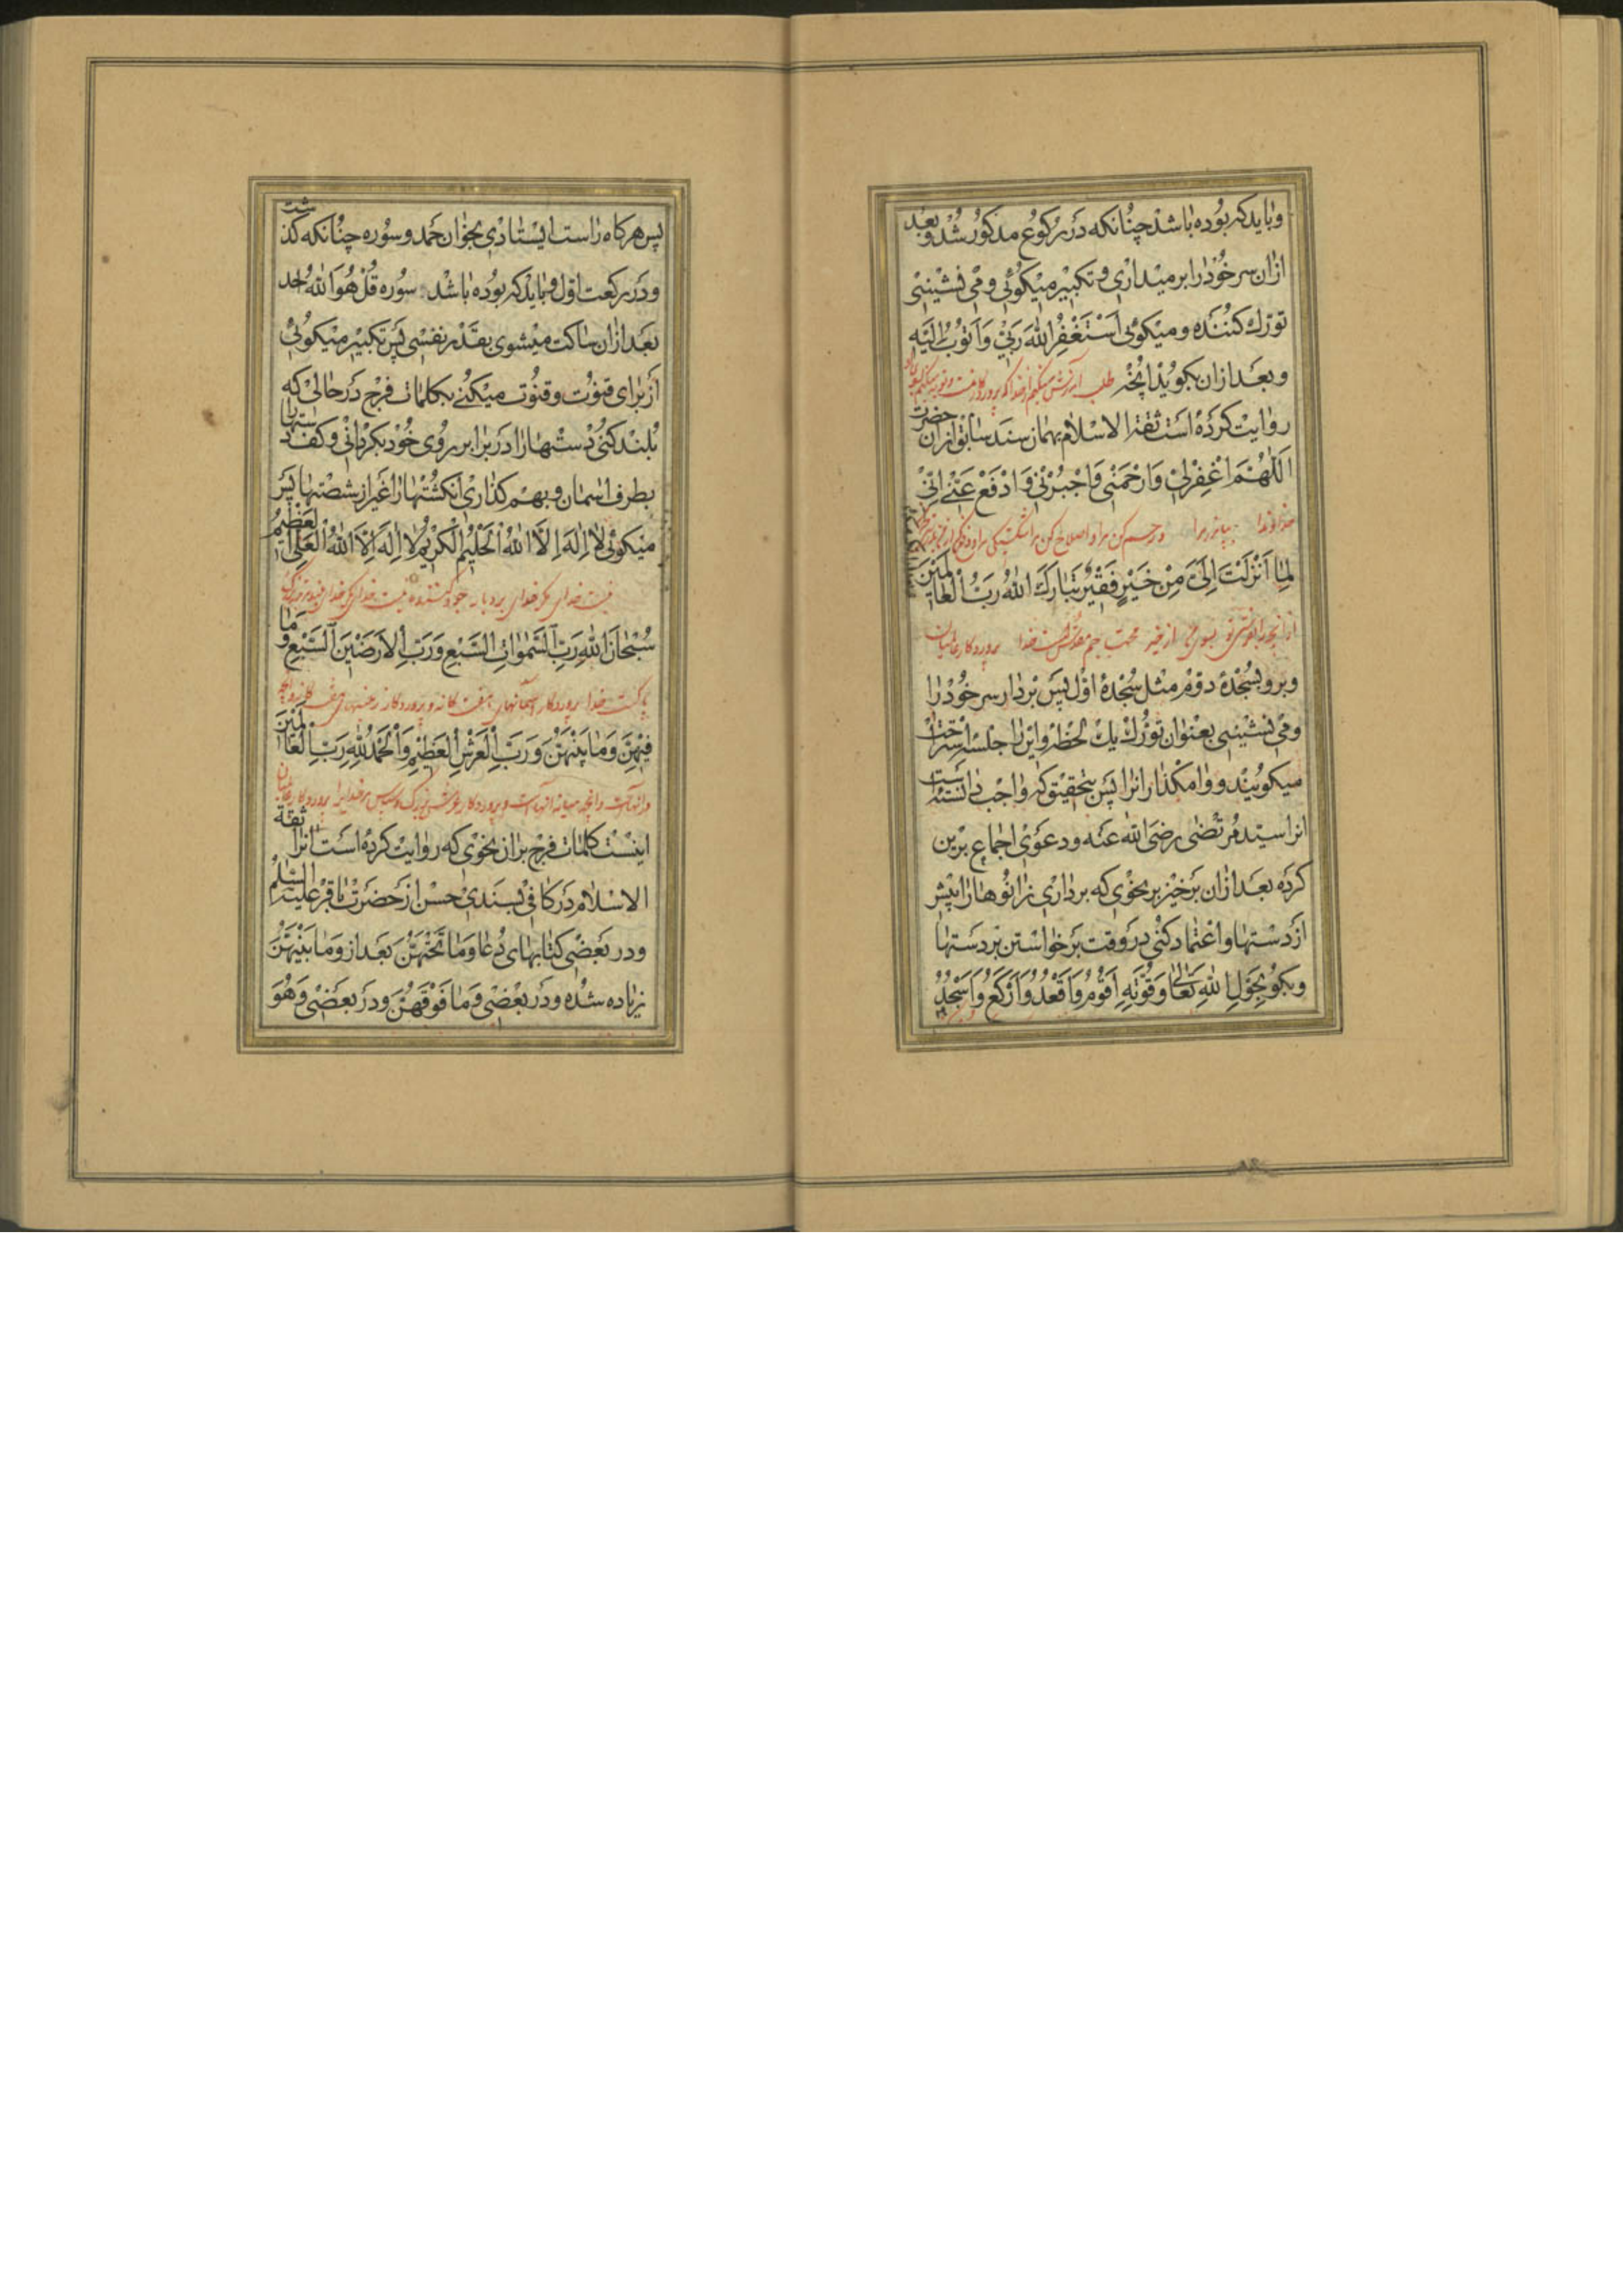 وباید که بوده باشد چنانکه در رکوع مذکور شد و بعد
ازان سر خود را بر میداری و تکبیر میکوئی و می نشینی
تورك کننده و میکوئی اَسْتَغْفِرُ اللّٰهَ رَبّی وَاَتُوبُ اِلَیْهِ
و بعد ازان بکوید انچه
طلب آمرزش میکنم از خدا که پروردکار منست و توبه میکنم بسوی او
روایت کرده است ثقة الاسلام بهمان سند سابق ازان حضرت
اَللّٰهُمَّ اغْفِرْلی وَارْحَمْنی وَاجْبُرْنی وَادْفَعْ عَنّی اِنّی
خداوندا بیامرز مرا و رحم کن مرا و اصلاح کن مرا شکستکی
لِمٰا اَنْزَلْتَ اِلَیَّ مِنْ خَیْرٍ فَقیرٌ تَبٰارَكَ اللّٰهُ رَبُّ الْعٰالَمینَ
از خیر محتاجم خدا پروردکار عالمیان
و برو بسجدۀ دوم مثل سجدۀ اول پس بردار سر خود را
و می نشینی بعنوان تورك یك لحظه و این را جلسۀ استراحت
میکویند و وامکذار انرا پس بتحقیق که واجب دانسته است
انرا سید مرتضی رضی الله عنه و دعوی اجماع برین
کرده بعد ازان برخیز بر نحوی که برداری زانوها را پیش
از دستها و اعتماد کنی در وقت برخواستن بر دستها
و بکو بِحَوْلِ اللّٰهِ تَعٰالٰی وَقُوَّتِهِ اَقُومُ وَاَقْعُدُ وَاَرْکَعُ وَاَسْجُدُ
پس هرکاه راست ایستادی بخوان حمد و سوره چنانکه کذشت
و در رکعت اول و باید که بوده باشد سوره قُلْ هُوَ اللّٰهُ اَحَد
بعد ازان ساکت میشوی بقدر نفسی پس تکبیر میکوئی
از برای قنوت و قنوت میکنی بکلمات فرج در حالی که
بلند کنی دستها را در برابر روی خود بکردانی و کف دستها را
بطرف اسمان و بهم کذاری انکشتها را غیر از شصتها پس
میکوئی لاٰ اِلٰهَ اِلاَّ اللّٰهُ الْحَلیمُ الْکَریمُ لاٰ اِلٰهَ اِلاَّ اللّٰهُ الْعَلِیُّ الْعَظیمُ
نیست خدای مکر خدای بردبار نیست خدای مکر خدای
سُبْحٰانَ اللّٰهِ رَبِّ السَّمٰوٰاتِ السَّبْعِ وَرَبِّ الْاَرَضینَ السَّبْعِ وَمٰا
پاکست خدا پروردکار اسمانهای هفت کانه و پروردکار زمینهای هفت کانه و انچه
فیهِنَّ وَمٰا بَیْنَهُنَّ وَرَبِّ الْعَرْشِ الْعَظیمِ وَالْحَمْدُ لِلّٰهِ رَبِّ الْعٰالَمینَ
در انهاست و انچه میانه انهاست و پروردکار عرش بزرك و سپاس مر خدایرا پروردکار عالمیان
اینست کلمات فرج بران نحوی که روایت کرده است انرا ثقة
الاسلام در کافی بسندی حسن از حضرت باقر علیه السلم
و در بعضی کتابهای دعا وَمٰا تَحْتَهُنَّ بعد از وَمٰا بَیْنَهُنَّ
زیاده شده و در بعضی وَمٰا فَوْقَهُنَّ و در بعضی وَهُوَ